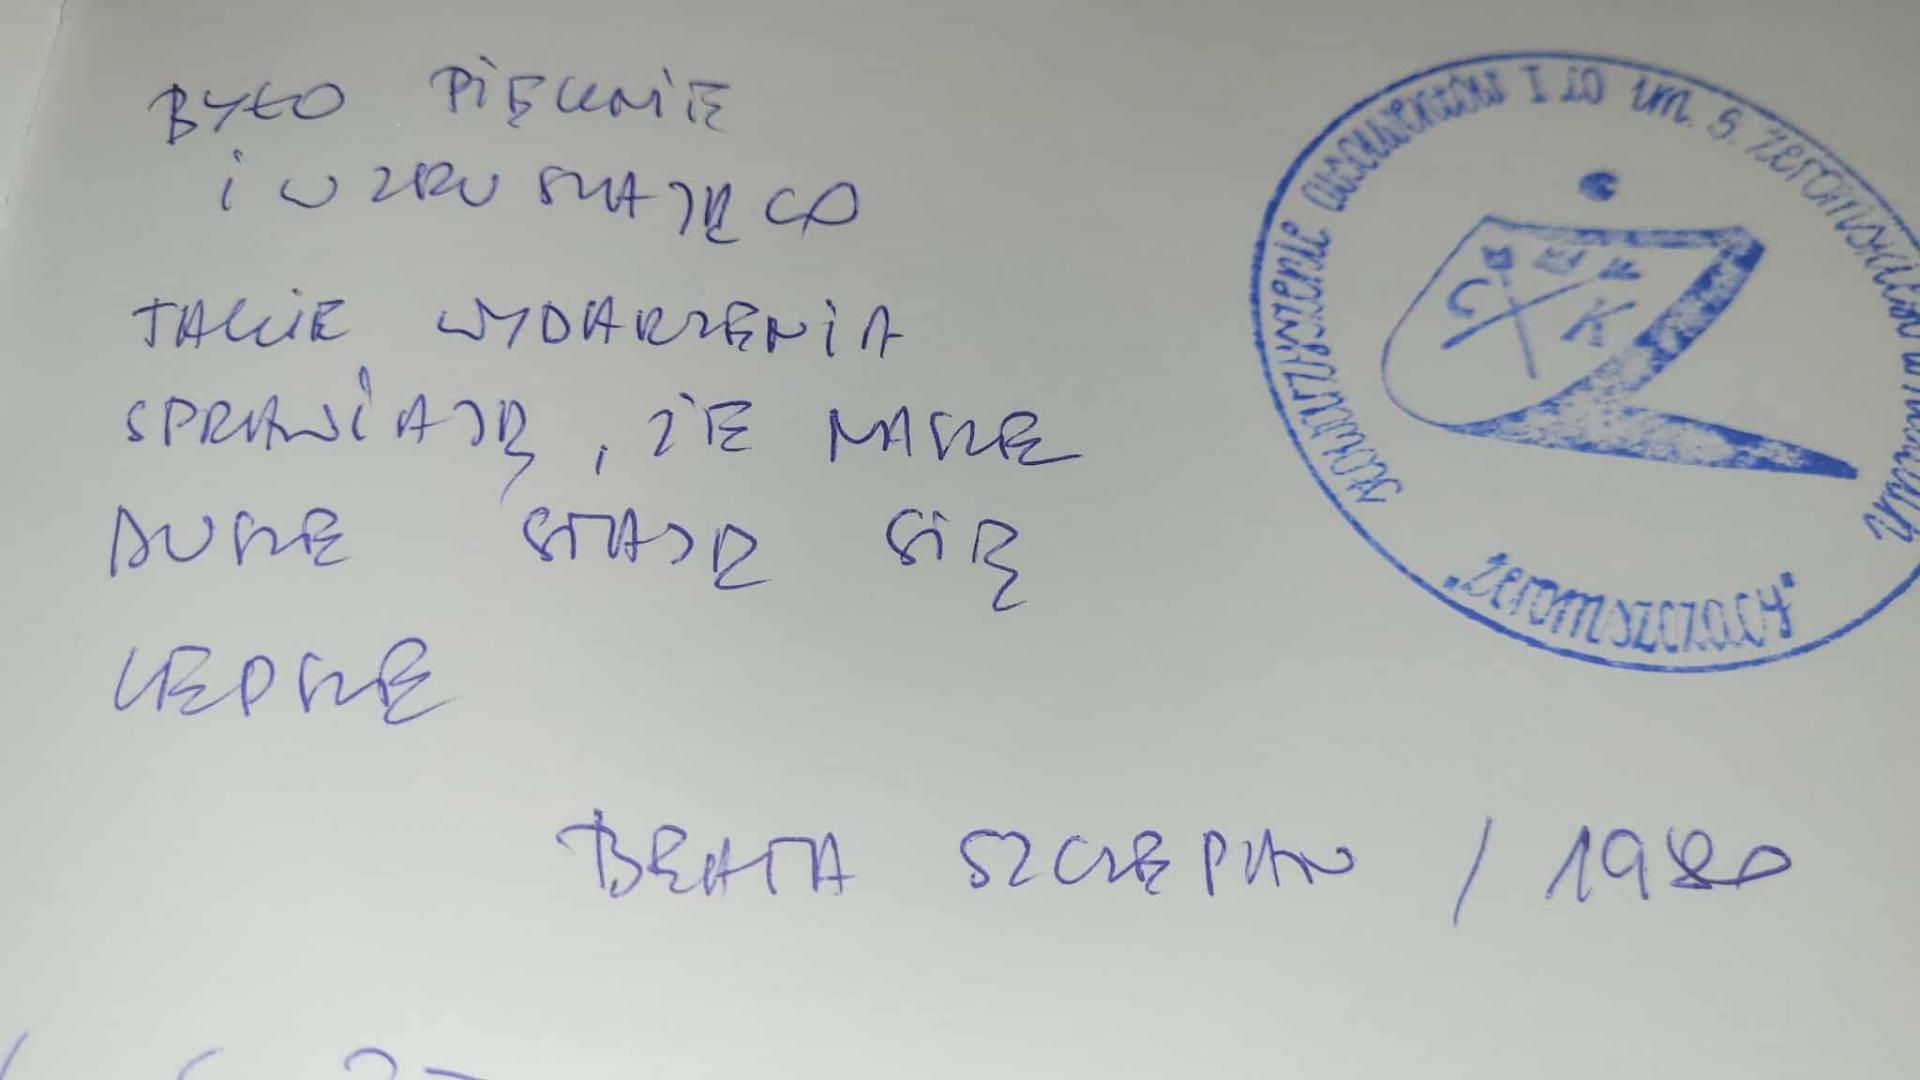 BYŁO PIĘKNIE
i WZRUSZAJĄCO
TAKIE WYDARZENIA
SPRAWIAJĄ, ŻE NASZE
DUSZE STAJĄ SIĘ
LEPSZE
BEATA SZCZEPAN / 1980
Stowarzyszenie absolwentów I LO im. S. Żeromskiego w Kielcach
C K
"Żeromszczacy"